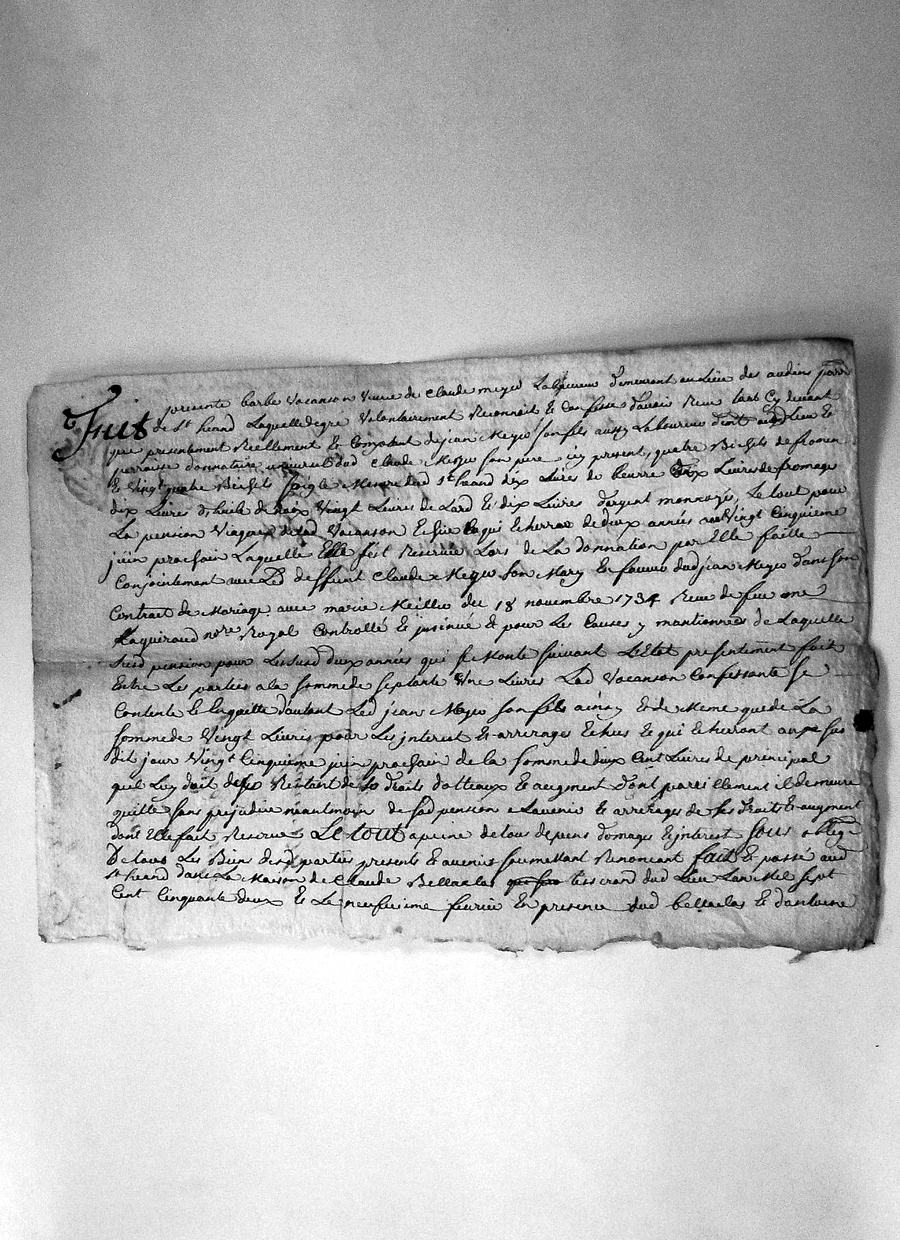 Fut presente barbe Vacanson Veuve de Claude meyer Laboureur demeurant au Lieu des audins parr
de St heand Laquelle de gre Volontairement Reconnoit et Confesse d'avoir Reçu tant Cy devant
que presentement Reellement et Comptant de jean Meyer son fils aussy Laboureur dud Lieu et
parroisse donnataire universel dud Claude Meyer son pere icy present, quatre Bichets de froment
et Vingt quatre Bichets soigle Mesure dud St heand dix Livres de beurre Dix Livres de fromage
dix Livres d'huile de noix Vingt Livres de Lard et dix Livres d'argent monnoyé, Le tout pour
La pension Viagere de lad Vacanson Echüe et qui Echerra de deux années au Vingt Cinquieme
juin prochain Laquelle Elle s'est Reservée Lors de La donnation par Elle faitte
Conjointement avec Led deffunt Claude Meyer son Mary En faveur dud jean Meyer dans son
Contrat de Mariage avec marie Meiller du 18 novembre 1734 Reçu de feu me
notre Royal Controllé et insinué et pour Les Causes y mantionnées de Laquelle
susd pension pour Lesusd deux années qui se Monte suivant L'Etat presentement fait
Entre Les parties a la somme de septante Une Livres Lad Vacanson Confessante se
Contente et en quitte d'autant Led jean Meyer son fils ainsy et de Meme que de La
somme de Vingt Livres pour Les interest et arrirages Echus et qui Echerront aux sus
dit jour Vingt Cinquieme juin prochain de la somme de deux Cent Livres de principal
quil Luy doit de Restant de Ses droits dotteaux et augment Dont pareillement il demeure
quitte sans prejudice neantmoins de sad pension a Lavenir et arrirages de ses Droits et augment
dont Elle fait Reserve Le tout a peine de tous depens domages et interest sous oblige
De tous Les Biens desd parties presents et avenirs soumettant Renoncant fait et passé aud
St heand dans La Maison de Claude Bellaclas tisserand dud Lieu Lan Mil sept
Cent Cinquante deux et Le neufieme fevrier En presence dud bellaclas et d'antoine